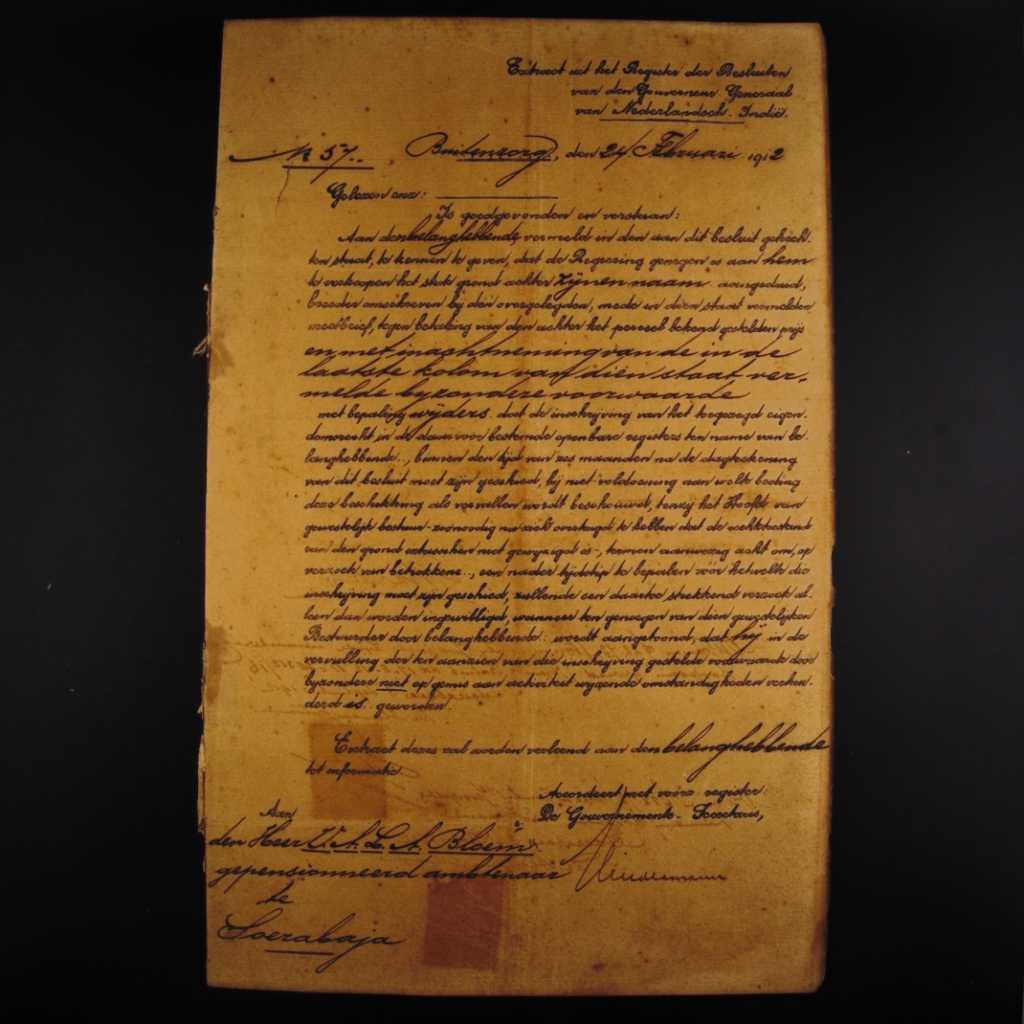 Extract uit het Register der Besluiten
van den Gouverneur Generaal
van Nederlandsch-Indië.
No 57. Buitenzorg, den 24 Februari 1912
Gelezen enz:
Is goedgevonden en verstaan:
Aan den belanghebbende vermeld in den aan dit besluit gehech-
ten staat, te kennen te geven, dat de Regeering genegen is aan hem
te verkoopen het stuk grond achter zijnen naam aangeduid,
breeder omschreven bij den overgelegden, mede in dien staat vermelden
meetbrief, tegen betaling van den achter het perceel bekend gestelden prijs
en met inachtneming van de in de
laatste kolom van dien staat ver-
melde byzondere voorwaarde
met bepaling wijders dat de inschrijving van het toegezegd eigen-
domsrecht in de daarvoor bestemde openbare registers ten name van be-
langhebbende.., binnen den tijd van zes maanden na de dagteekening
van dit besluit moet zijn geschied, bij niet voldoening aan welk beding
deze beschikking als vervallen wordt beschouwd, tenzij het Hoofd van
gewestelijk bestuur - zoonoodig na zich overtuigd te hebben dat de rechtstoestand
van den grond intusschen niet gewijzigd is -, termen aanwezig acht om, op
verzoek van betrokkene.., een nader tijdstip te bepalen vóór hetwelk die
inschrijving moet zijn geschied, zullende een daartoe strekkend verzoek al-
leen dan worden ingewilligd, wanneer ten genoegen van dien gewestelijken
Bestuurder door belanghebbende: wordt aangetoond, dat hij in de
vervulling der ten aanzien van die inschrijving gestelde voorwaarde door
byzondere niet op gemis aan activiteit wijzende omstandigheden verhin-
derd is geworden.
Extract dezes zal worden verleend aan den belanghebbende
tot informatie.
Accordeert met voorz. register:
De Gouvernements-Secretaris,
Aan
den Heer V. A. L. A. Bloem
gepensionneerd ambtenaar
te
Soerabaja